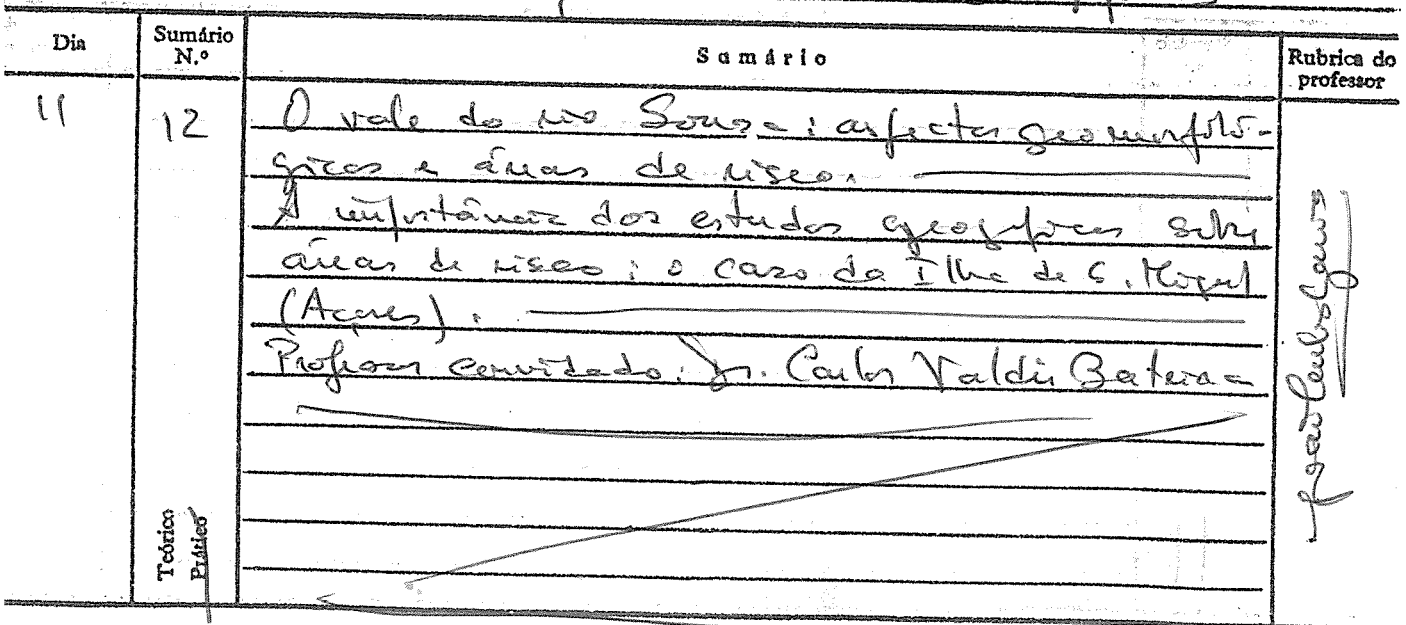 Dia
Sumário N.º
Sumário
Rubrica do professor
11
12
O vale do rio Sousa: aspectos geomorfoló-
gicos e áreas de risco.
A importância dos estudos geográficos sobre
áreas de risco: o caso da Ilha de S. Miguel
(Açores).
Professor convidado: Dr. Carlos Valdir Bateira
Teórico
Prático